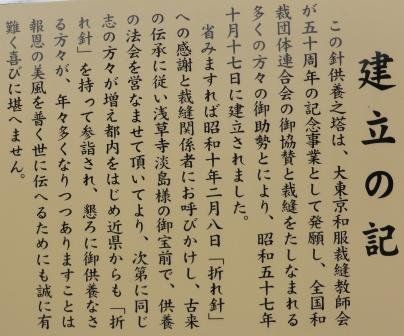 建立の記
この針供養之塔は、大東京和服裁縫教師会
が五十周年の記念事業として発願し、全国和
裁団体連合会の御協賛と裁縫をたしなまれる
多くの方々の御助勢とにより、昭和五十七年
十月十七日に建立されました。
省みますれば昭和十年二月八日「折れ針」
への感謝と裁縫関係者にお呼びかけし、古来
の伝承に従い浅草寺淡島様の御宝前で、供養
の法会を営なませて頂いてより、次第に同じ
志の方々が増え都内をはじめ近県からも「折
れ針」を持って参詣され、懇ろに御供養なさ
る方々が、年々多くなりつつありますことは
報恩の美風を普く世に伝へるためにも誠に有
難く喜びに堪へません。